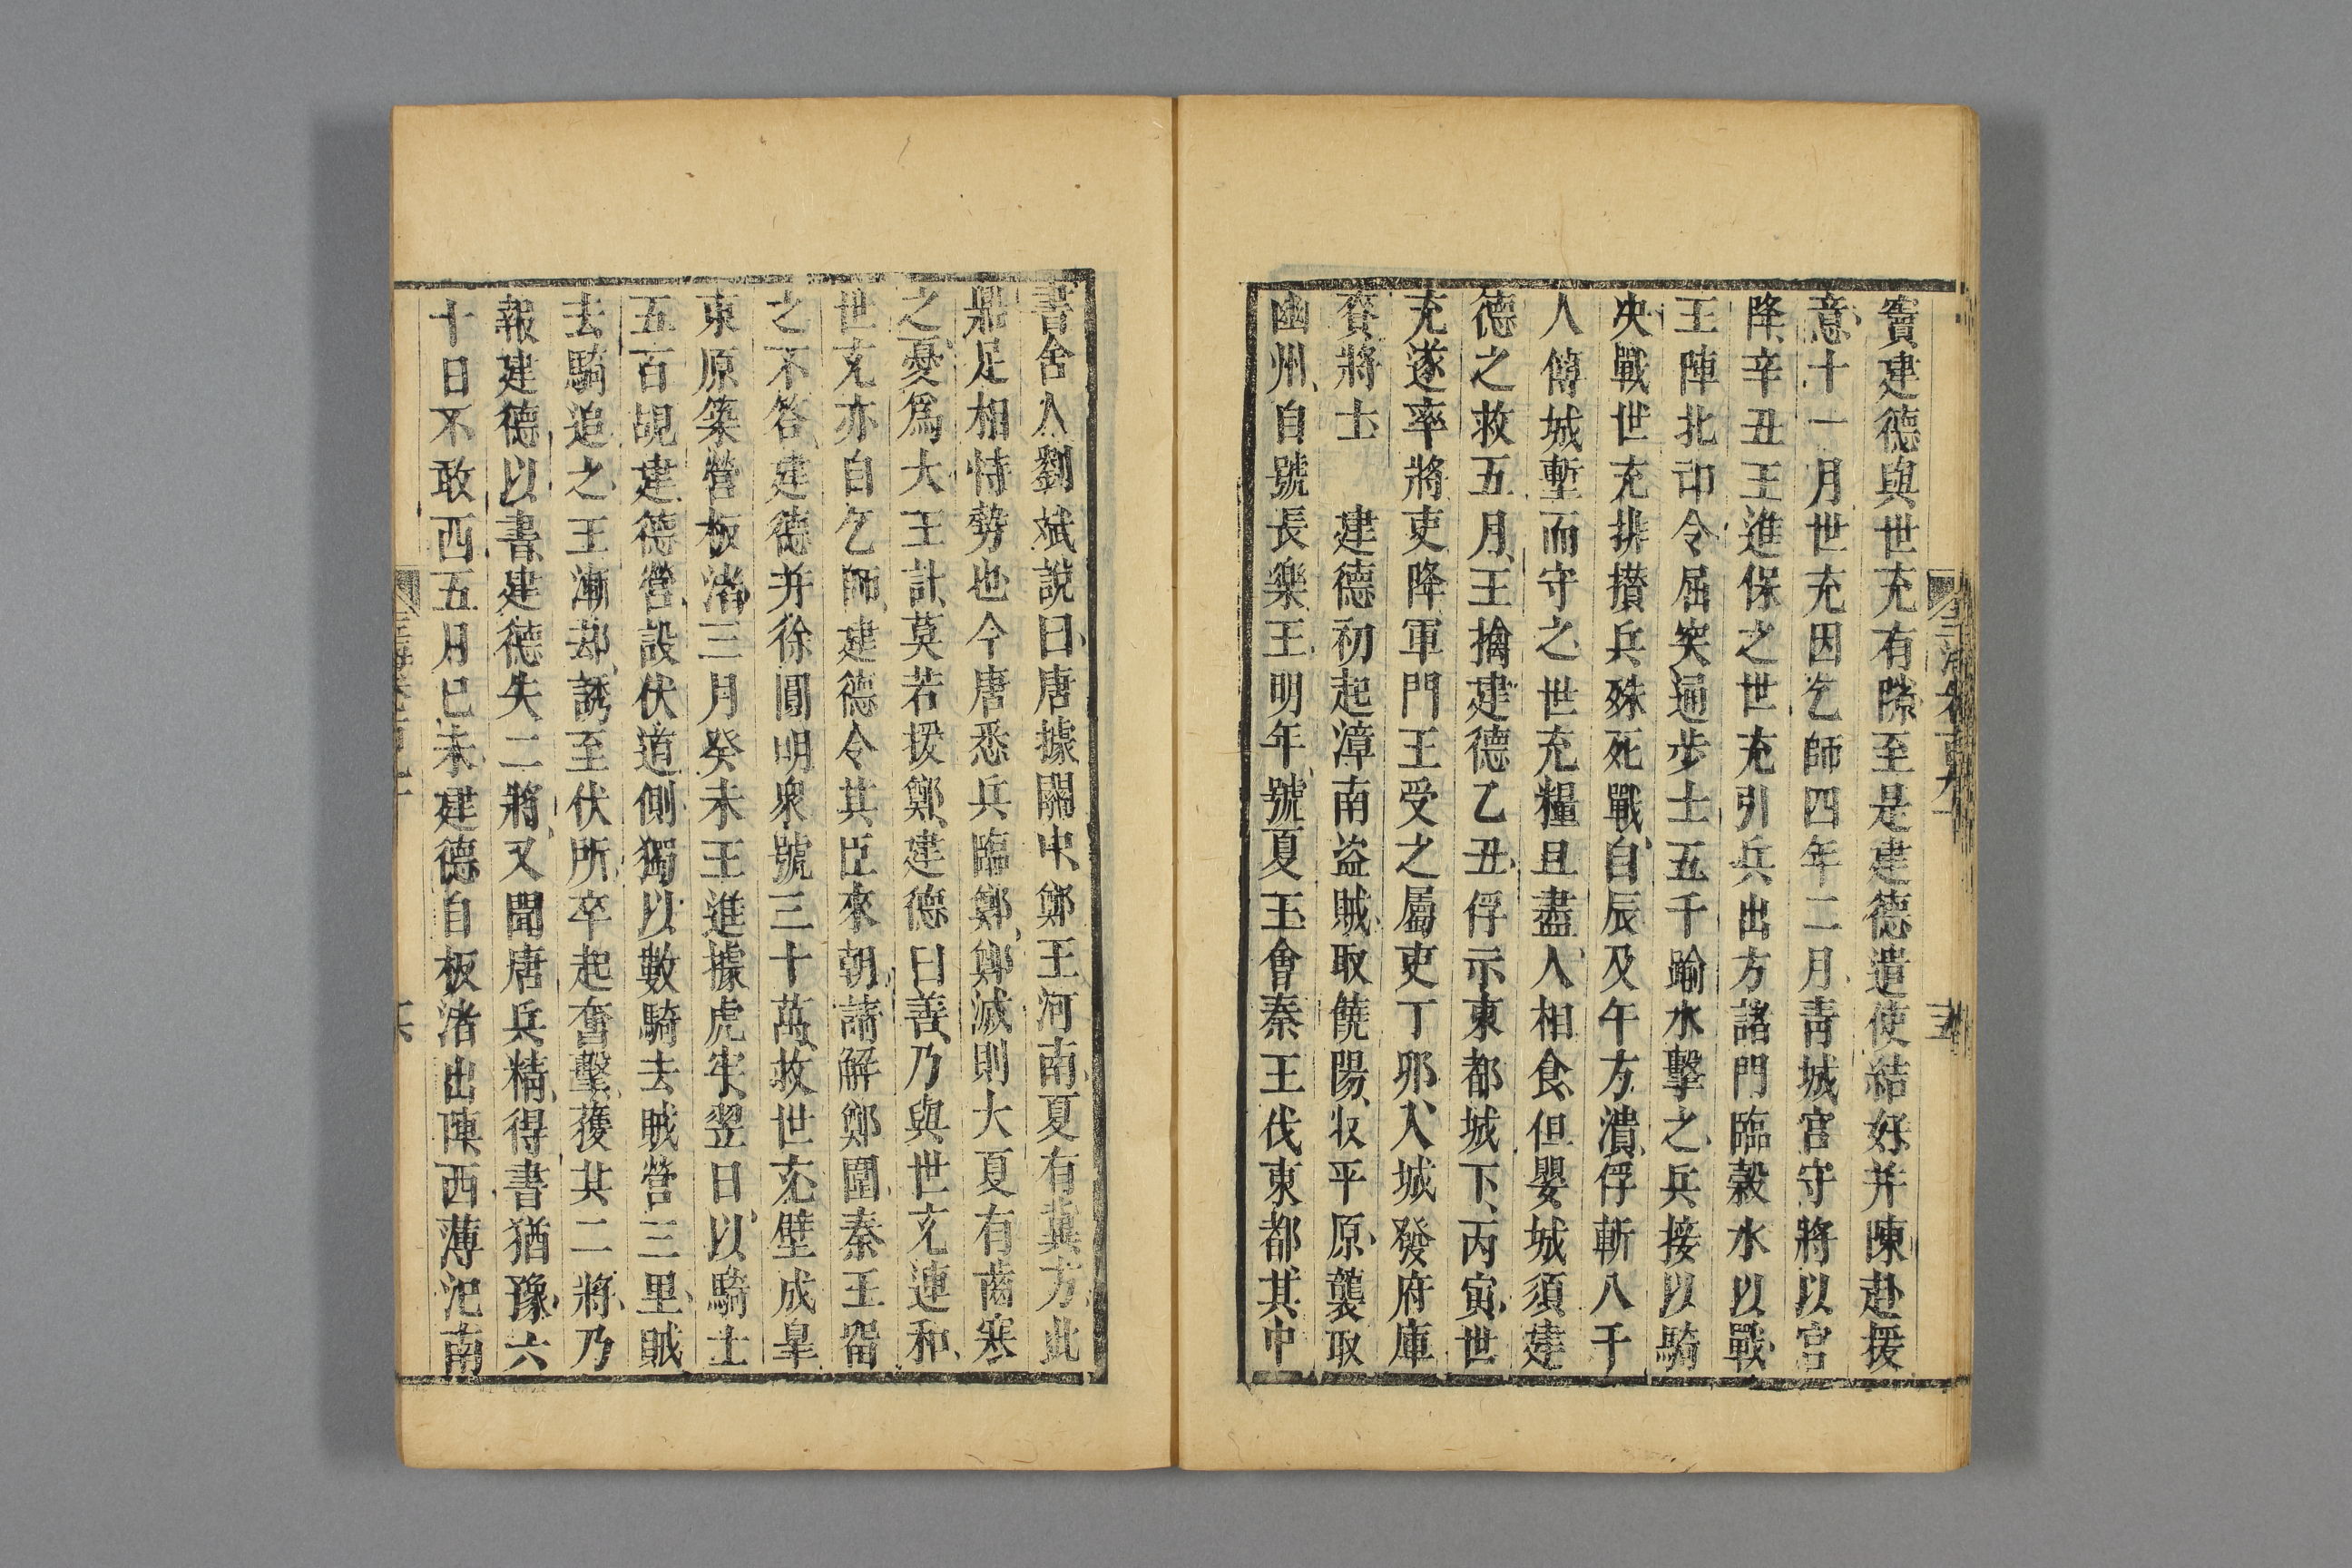 竇建德與世充有隙至是建德遣使結好并陳赴援
意十一月世充因乞師四年二月青城宮守將以宮
降辛丑王進保之世充引兵出方諸門臨穀水以戰
王陣北邙令屈突通步士五千踰水擊之兵接以騎
决戰世充排攅兵殊死戰自辰及午方潰俘斬八千
人傅城塹而守之世充糧且盡人相食但嬰城須建
德之救五月王擒建德乙丑俘示東都城下丙寅世
充遂率將吏降軍門王受之屬吏丁卯入城發府庫
賚將士　建德初起漳南盜賊取饒陽收平原襲取
幽州自號長樂王明年號夏王會秦王伐東都其中
書舍人劉斌說曰唐據關中鄭王河南夏有冀方此
鼎足相恃勢也今唐悉兵臨鄭鄭滅則大夏有齒寒
之憂爲大王計莫若援鄭建德曰善乃與世充連和
世充亦自乞師建德令其臣來朝請解鄭圍秦王留
之不答建德并徐圓明衆號三十萬救世充壁成皐
東原築營板渚三月癸未王進據虎牢翌日以騎士
五百覘建德營設伏道側獨以數騎去賊營三里賊
去騎追之王漸却誘至伏所卒起奮擊獲其二將乃
報建德以書建德失二將又聞唐兵精得書猶豫六
十日不敢西五月己未建德自板渚出陳西薄汜南